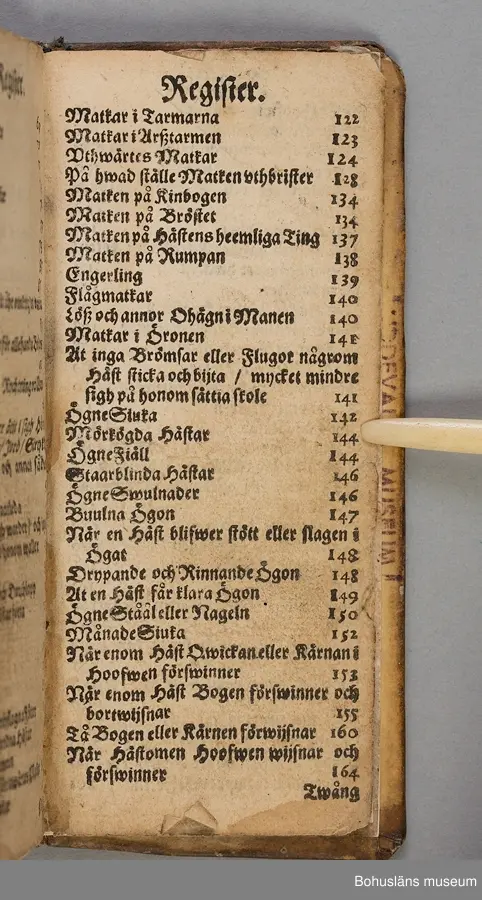 Register.
Matkar i Tarmarna 122
Matkar i Arßtarmen 123
Vthwärtes Matkar 124
På hwad ställe Matken vthbrister 128
Matken på Kinbogen 134
Matken på Bröstet 134
Matken på Hästens heemliga Ting 137
Matken på Rumpan 138
Engerling 139
Flågmatkar 140
Löß och annor Ohägn i Manen 140
Matkar i Öronen 141
At inga Brömsar eller Flugor någrom
Häst sticka och bijta / mycket mindre
sigh på honom sättia skole 141
Ögne Siuka 142
Mörkögda Hästar 144
Ögne Fiäll 144
Staarblinda Hästar 146
Ögne Swulnader 146
Buulna Ögon 147
När en Häst blifwer stött eller slagen i
Ögat 148
Drypande och Rinnande Ögon 148
At en Häst får klara Ögon 149
Ögne Stååleller Nageln 150
Månade Siuka 152
När enom Häst Qwickan eller Kärnan i
Hoofwen förswinner 153
När enom Häst Bogen förswinner och
bortwijsnar 155
Tå Bogen eller Kärnen förwijsnar 160
När Hästomen Hoofwen wijsnar och
förswinner 164
Twång
MUSEUM
Bohusläns museum